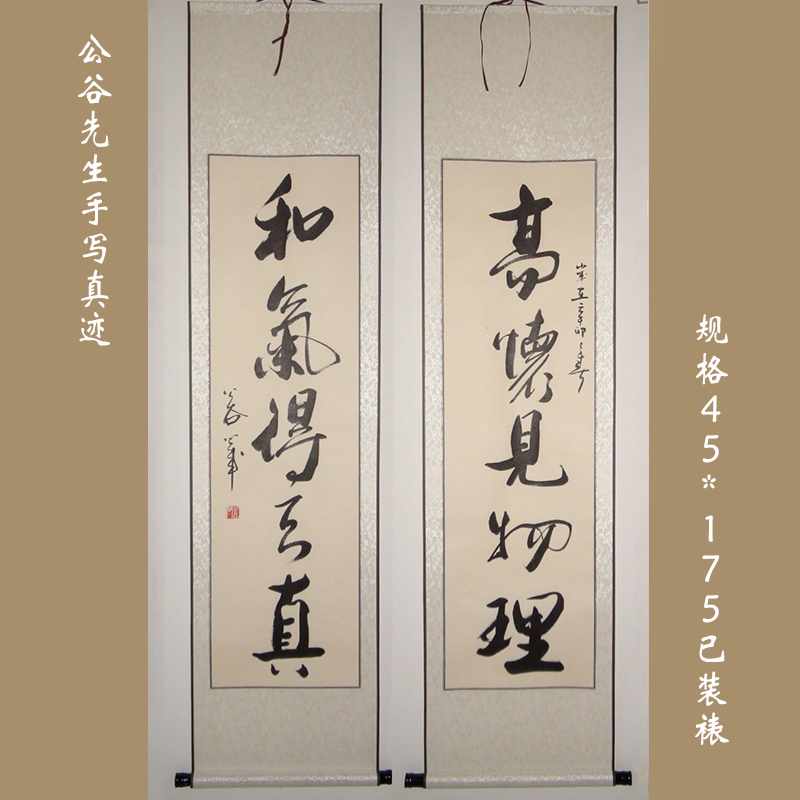 公谷先生手写真迹
高懷見物理
和氣得天真
公谷
规格45*175已装裱